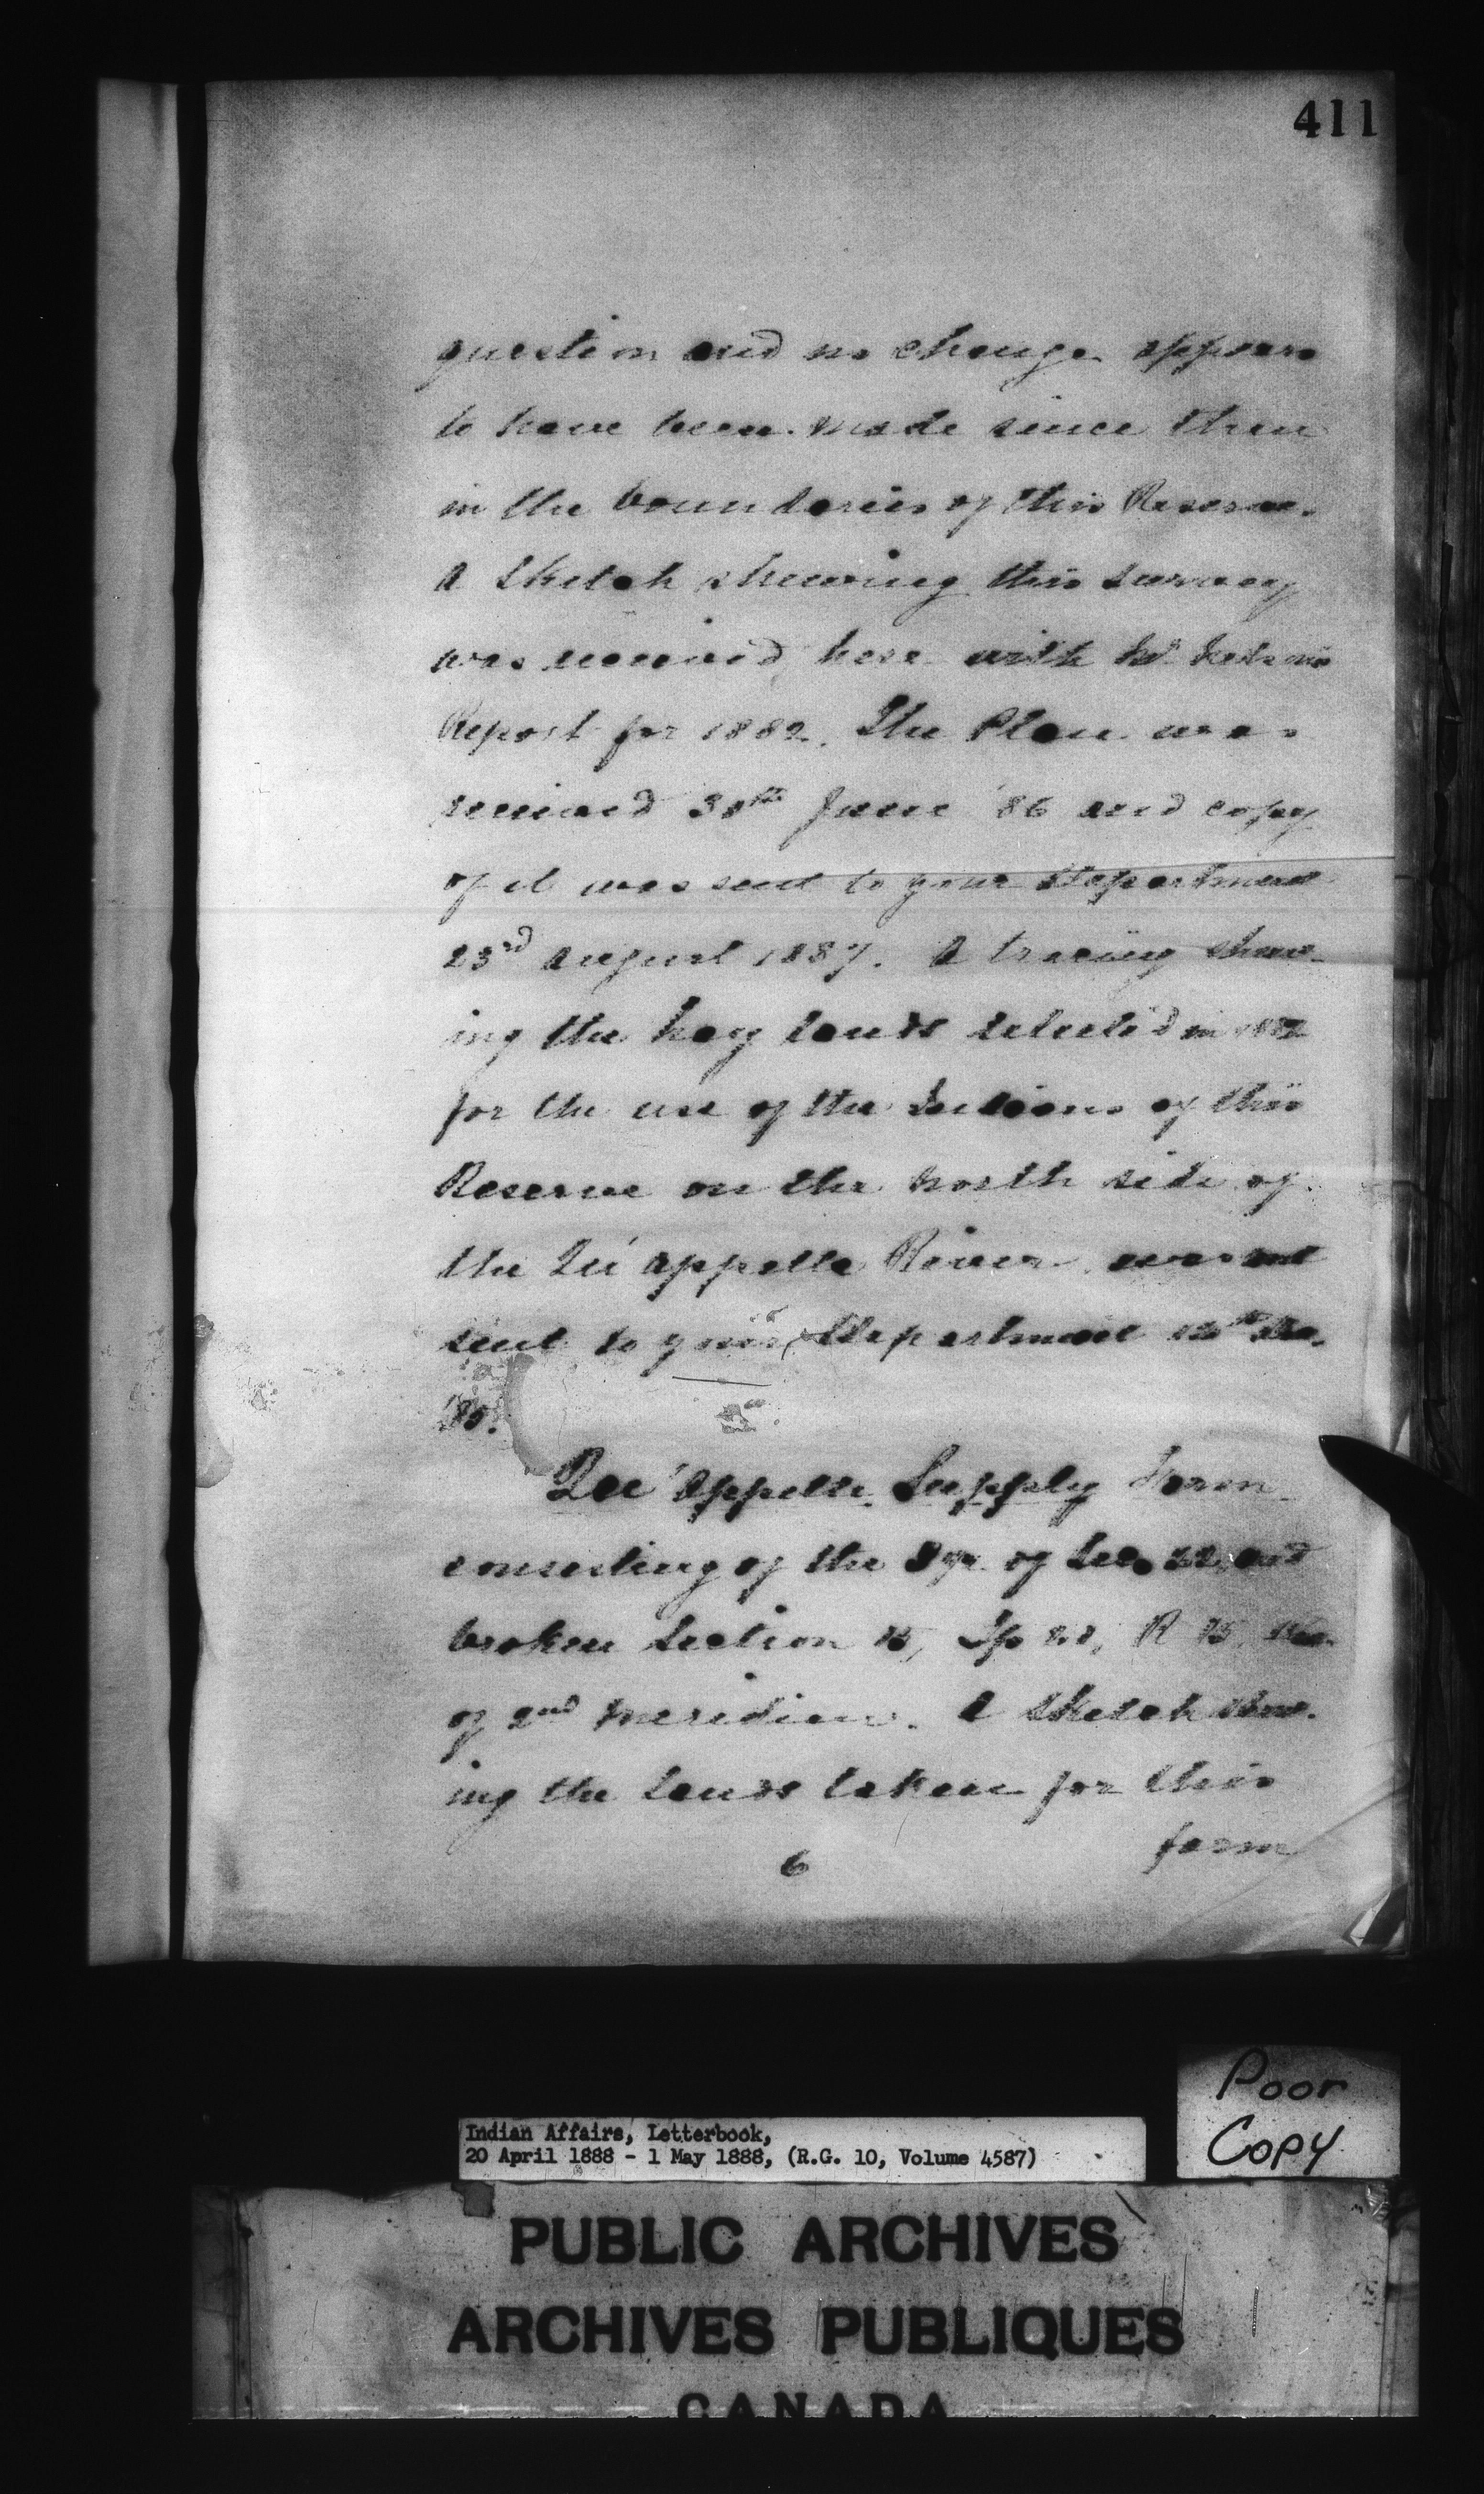 411
question and no change appears
to have been made since then
in the boundaries of this Reserve.
A Sketch shewing this survey
was received here with Mr.
Report for 1882. The Plan was
received 30th June '86 and copy
of it was sent to your Department
23rd August 1887. A tracing shew-
ing the hay lands selected in
for the use of the Indians of this
Reserve on the North side of
the Qu'appelle River was
sent to your Department

Qu'appelle Supply Farm
consisting of the of Sec. 22 and
broken Section 15, Tp 21, R 13,
of 2nd Meridian. A Sketch shew-
ing the lands taken for this
farm
6
Poor
Copy
Indian Affairs, Letterbook,
20 April 1888 - 1 May 1888, (R.G. 10, Volume 4587)
PUBLIC ARCHIVES
ARCHIVES PUBLIQUES
CANADA